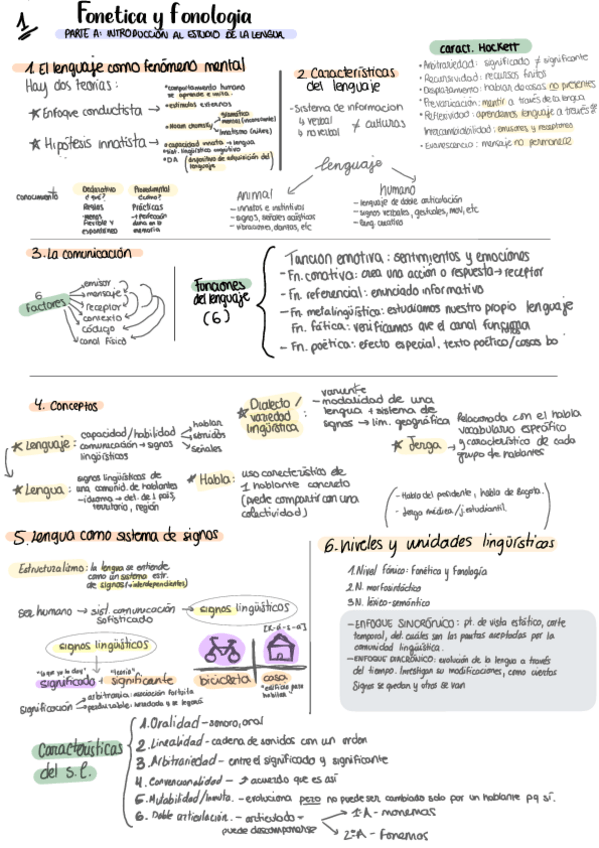 1.
Fonetica y Fonologia
PARTE A: INTRODUCCIÓN AL ESTUDIO DE LA LENGUA
1. El lenguaje como fenómeno mental
Hay dos teorías:
★ Enfoque conductista →
• comportamiento humano
se aprende e imita.
• estímulos externos
★ Hipótesis innatista →
• Noam Chomsky
• capacidad innata → lengua
• sist. lingüístico cognitivo
• DA (dispositivo de adquisición del
lenguaje
conocimiento
Declarativo
¿qué?
Procedimental
¿cómo?
Prácticas
→ perfección
memoria
2. Características
del lenguaje
- Sistema de informacion
↳ verbal
↳ no verbal
≠ culturas
caract. Hockett
• Arbitrariedad: significado ≠ significante
• Recursividad: recursos finitos
• Desplazamiento: hablar de cosas no presentes
• Prevaricación: mentir a través de la lengua
• Reflexividad: aprendemos lenguaje a través de
Intercambiabilidad: emisores y receptores
• Evanescencia: mensaje no permanece
lenguaje
Animal
- innatos e instintivos
- signos, señales acústicas
- vibraciones, danzas, etc
humano
- lenguaje de doble articulación
- signos verbales, gestuales, mov, etc
- leng. creativo
3. La comunicación
6
Factores
emisor
mensaje
receptor
contexto
código
canal físico
Funciones
del lenguaje
(6)
Función emotiva: sentimientos y emociones
- Fn. conativa: crea una acción o respuesta → receptor
- Fn. referencial: enunciado informativo
- Fn metalingüística: estudiamos nuestro propio lenguaje
Fn. fática: verificamos que el canal funciona
- Fn. poética: efecto especial. texto poético/cosas bo
4. Conceptos
★ Lenguaje: capacidad/habilidad
comunicación → signos
lingüísticos
hablar
sonidos
señales
★ Dialecto /
variedad
lingüística
variante
- modalidad de una
lengua + sistema de
signos → lim. geográfica
★ Jerga →
Relacionada con el habla
vocabulario específico
y característico de cada
grupo de hablantes
★ Lengua:
signos lingüísticos de
una comunid. de hablantes
- idioma → del. de 1 país,
territorio, región
★ Habla:
uso característico de
1 hablante concreto
(puede compartir con una
colectividad)
- Habla del presidente, habla de Bogotá.
- Jerga médica/j.estudiantil.
5. Lengua como sistema de signos
Estructuralismo: la lengua se entiende
como un sistema estr.
de signos (→ interdependientes)
ser humano → sist. comunicación → signos lingüísticos
sofisticado
signos lingüísticos
significado + significante
bicicleta
[k-á-s-a]
casa
"edificio para
habitar"
Significación
arbitraria: asociación fortuita
perdurable: heredada y se legará
6. Niveles y unidades lingüísticas
1. Nivel fónico: Fonética y Fonología
2. N. morfosintáctico
3. N. léxico-semántico
- ENFOQUE SINCRÓNICO: pt. de vista estático, corte
temporal, det. cuáles son las pautas aceptadas por la
comunidad lingüística.
- ENFOQUE DIACRÓNICO: evolución de la lengua a través
del tiempo. Investigan su modificaciones, como ciertos
Signos se quedan y otros se van
Características
del s.l.
1. Oralidad - sonoro, oral
2. Linealidad - cadena de sonidos con un orden
3. Arbitrariedad - entre el significado y significante
4. Convencionalidad - → acuerdo que es así
5. Mutabilidad/Inmuta. - evoluciona pero no puede ser cambiado solo por un hablante pq sí.
6. Doble articulación. - articulado →
puede descomponerse
1ªA - monemas
2ªA - Fonemas